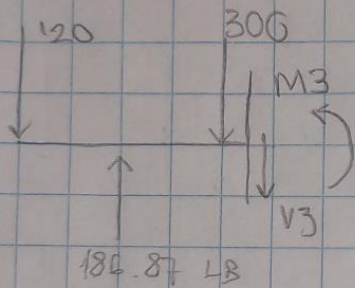 120
300
M3
V3
186.87 LB